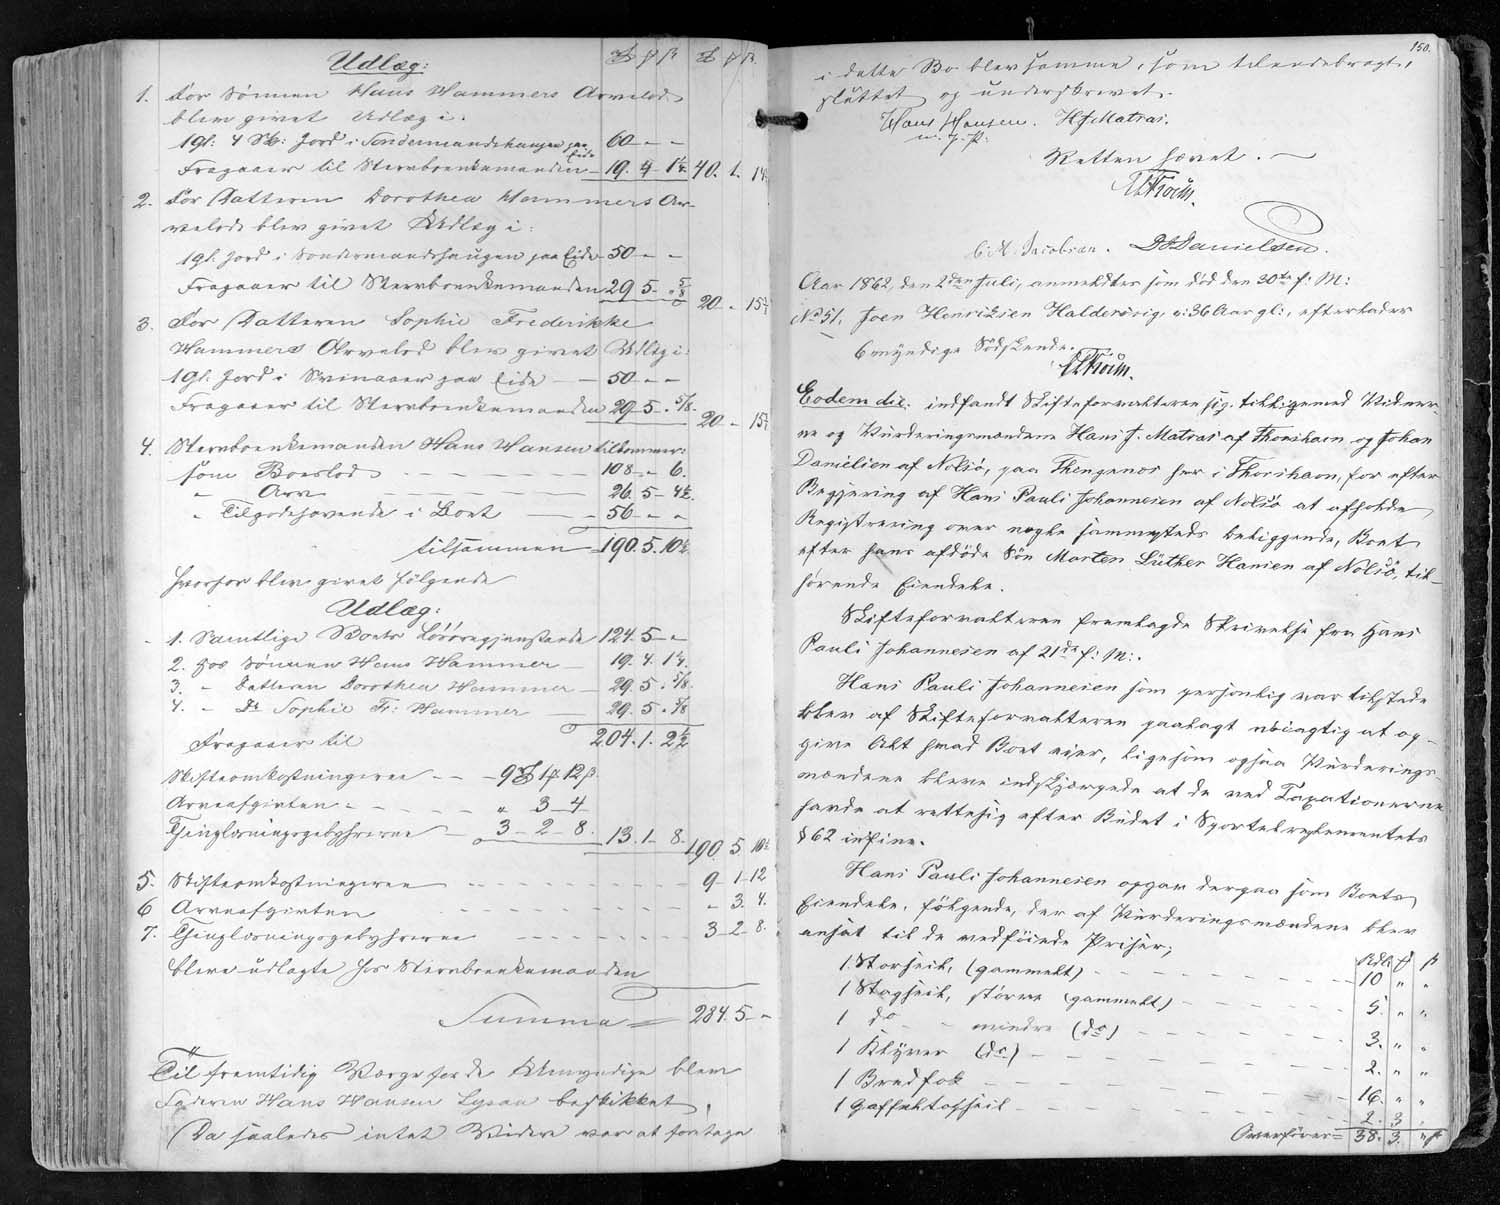 Udlæg:
1. For Sønnen Hans Hammers Arvelod
blev givet Udlæg i:
1 Gl: 4 Sk: Jord i Søndermandshaugen paa Eide 60 - -
Fragaaer til Stervboenkemanden 19. 4 - 1½ 40. 1. 14
2. For Datteren Dorothea Hammers Ar-
velod blev givet Udlæg i:
1 Gl. Jord i Søndermandshaugen paa Eide 50 - -
Fragaaer til Stervboenkemanden 29 5 - 5/8 20 - 15
3. For Datteren Sophie Frederikke
Hammers Arvelod blev givet Udlæg i:
1 Gl. Jord i Svinaaer paa Eide - - 50 - -
Fragaaer til Stervboenkemanden 29. 5. 5/8 20 - 15
4. Stervboenkemanden Hans Hansen tilkommer:
som Boeslod 108 - " 6.
" Arv 26. 5 - 4½
" Tilgodehavende i Boet 56 - " "
tilsammen 190. 5. 10½
hvorfor blev givet følgende
Udlæg:
1. Samtlige Boets Løsøregjenstande 124. 5 - "
2. Hos Sønnen Hans Hammer 19. 4. 1½
3. " Datteren Dorothea Hammer 29. 5. 5/8
4. " Do Sophie Fr: Hammer 29. 5. 5/8
204. 1. 2½
Fragaaer til
Skifteomkostningerne - - 9 1 12 β
Arveafgivten " 3 4
Thinglæsningsgebyhrerne 3 - 2 - 8. 13. 1 - 8. 190. 5. 10½
5. Skifteomkostningerne 9 - 1 - 12
6 Arveafgivten " 3. 4.
7. Thinglæsningsgebyhrerne 3 - 2 - 8.
bleve udlagte hos Stervboenkemanden
Summa = 284. 5 - "
Til fremtidig Værge for de Umyndige blev
Faderen Hans Hansen Lysaa beskikket.
Da saaledes intet Videre var at foretage
150.
i dette Bo blev samme, som tilendebragt,
sluttet og underskrevet.
Hans Hansen. HJMatras.
m. f. P.
Retten hævet. -
C. M. Jacobsen. DDanielsen.
Aar 1862, den 2den Juli, anmeldtes som død den 30te f: M:
No 51, Joen Henriksen Haldersvig, 36 Aar gl:, efterlader
6 myndige Sødskende.
Eodem die: indfandt Skifteforvalteren sig tilligemed Vidner-
ne og Vurderingsmændene Hans J. Matras af Thorshavn og Johan
Danielsen af Nolsø, paa Thinganæs her i Thorshavn, for efter
Begjæring af Hans Pauli Johannesen af Nolsø at afholde
Registrering over nogle sammesteds beliggende, Boet
efter hans afdøde Søn Morten Luther Hansen af Nolsø, til-
hørende Eiendele.
Skifteforvalteren fremlagde Skrivelse fra Hans
Pauli Johannesen af 21de f: M:.
Hans Pauli Johannesen som personlig var tilstede
blev af Skifteforvalteren paalagt nøiagtig at op-
give Alt hvad Boet eier, ligesom ogsaa Vurderings-
mændene bleve indskjærpede at de ved Taxationerne
havde at rette sig efter Budet i Sportelreglementets
§ 62 in fine.
Hans Pauli Johannesen opgav derpaa som Boets
Eiendele, følgende, der af Vurderingsmændene blev
ansat til de vedføiede Priser;
Rdlr β
1 Storseil, (gammelt) 10 " "
1 Stagseil, større (gammelt) 5. " "
1 do mindre (do) 3. " "
1 Klyver (do) 2. " "
1 Bredfok 16. " "
1 Gaffeltopseil 2. 3
Overføres = 38. 3. "